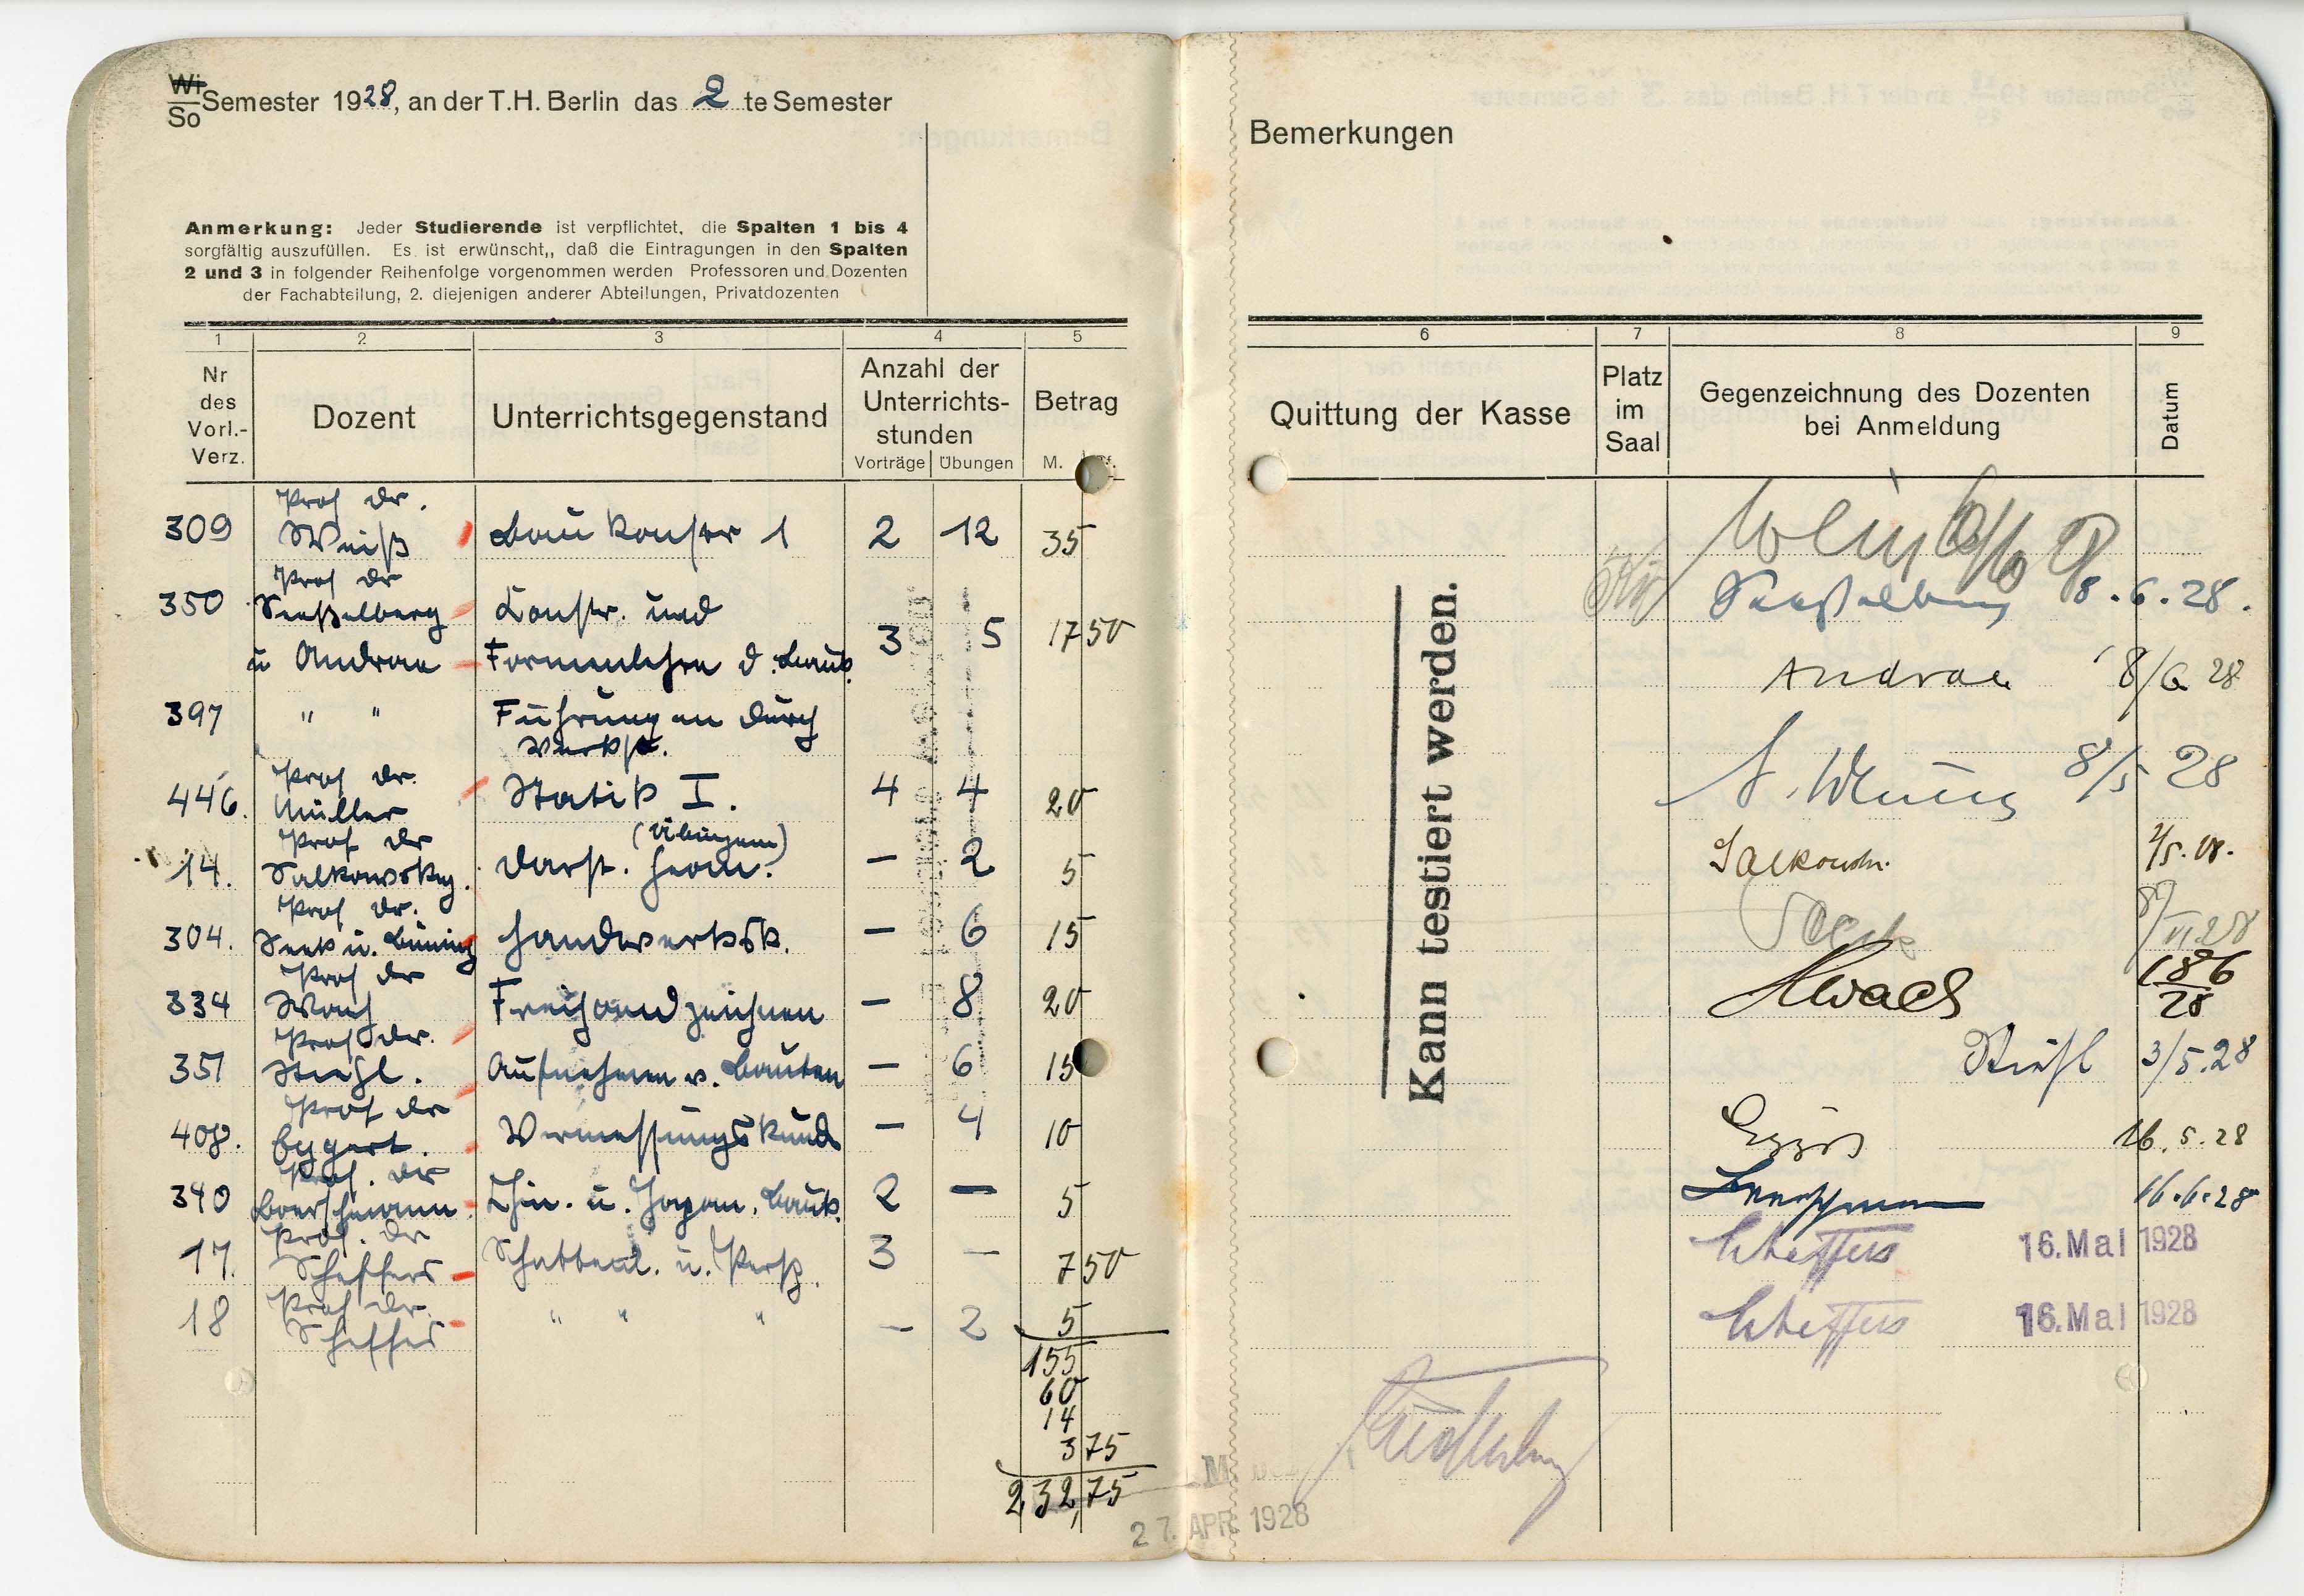 Wi
So Semester 1928, an der T.H. Berlin das 2 te Semester
Anmerkung: Jeder Studierende ist verpflichtet, die Spalten 1 bis 4
sorgfältig auszufüllen. Es ist erwünscht,, daß die Eintragungen in den Spalten
2 und 3 in folgender Reihenfolge vorgenommen werden Professoren und Dozenten
der Fachabteilung, 2. diejenigen anderer Abteilungen, Privatdozenten
1 2 3 4 5
Nr des Vorl.- Verz.
Dozent
Unterrichtsgegenstand
Anzahl der Unterrichts- stunden
Vorträge Übungen
Betrag
M.
Prof Dr.
309 Weiß Baukonstr 1 2 12 35
Prof Dr
350 Seeßelberg Konstr. und
u Andrae Formenlehre d. Bauk. 3 5 17 50
397 " " Führungen durch
Werkst.
Prof Dr.
446. Müller Statik I. 4 4 20
Prof Dr (Übungen)
14. Salkowsky. Darst. Geom. – 2 5
Prof Dr.
304. Seek u. Büning Handwerksk. – 6 15
Prof Dr
334 Wach Freihandzeichnen – 8 20
Prof Dr.
351 Stiehl. Aufnehmen v. Bauten – 6 15
Prof Dr
408. Eggert. Vermessungskunde – 4 10
Prof. Dr
340 Boerschmann Chin. u. Japan. Bauk. 2 – 5
Prof. Dr
17. Scheffers Schattenl. u. Persp. 3 – 7 50
Prof Dr.
18 Scheffers " " " – 2 5
155
60
14
3 75
232,75
27. APR. 1928
Bemerkungen
6 7 8 9
Quittung der Kasse
Platz im Saal
Gegenzeichnung des Dozenten
bei Anmeldung
Datum
Kann testiert werden.
Seeßelberg 8.6.28.
Andrae 8/6 28
8/5 28
Salkowski
Seeck
Wach 18 6 28
Stiehl 3/5.28
16.5.28
Boerschmann 16.6.28
Scheffers 16. Mai 1928
Scheffers 16. Mai 1928